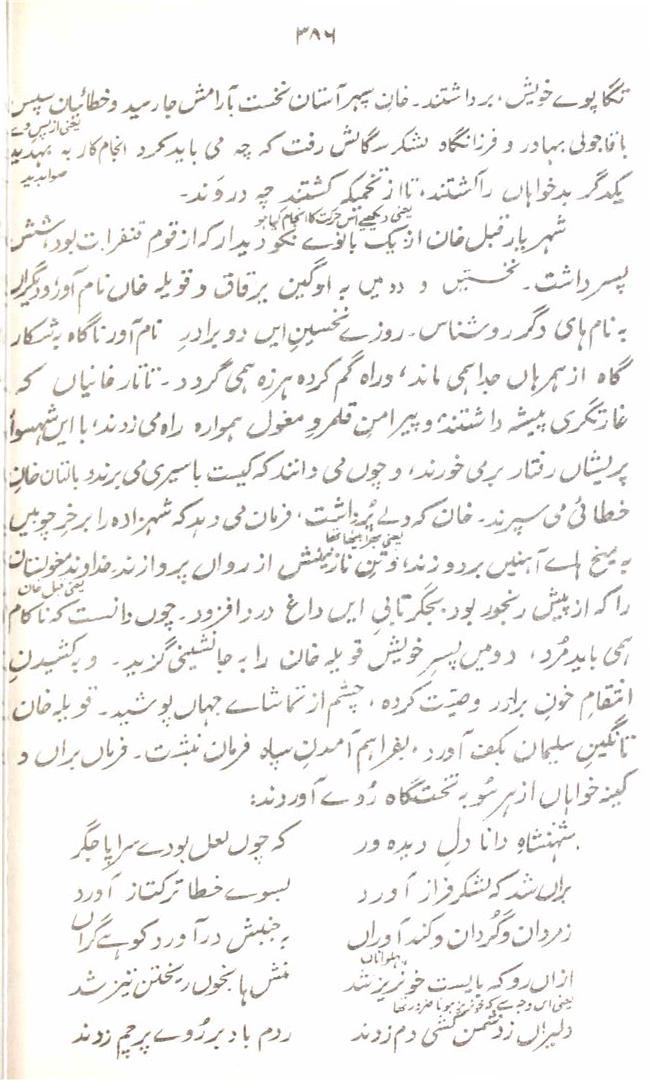 ۳۸۶
تگاپوے خویش، برداشتند۔ خانِ سپہر آستان نخست بآرامش جا رسید و خطائیان سپس
یعنی ازپس وے
باقاجولی بہادر و فرزانگاہ لشکر سگالش رفت کہ چہ می باید کرد انجام کار بہ بہدید
صوابدید
یکدگر بدخواہاں را کُشتند، تا از تخمیکہ کِشتند چہ دروَند۔
یعنی دیکھیے اس حرکت کا انجام کیا ہو
شہریار قبل خان از یک بانوے نکو دیدار کہ از قوم قنقرات بود، شش
پسر داشت۔ نخستیں و دومیں بہ اوگین برقاق و قویلہ خاں نام آور و دیگراں
بہ نام ہای دگر روشناس۔ روزے نخسین ایں دو برادرِ نام آور ناگاہ بہ شکار
گاہ از ہمرہاں جدا ہمی ماند، وراہ گم کردہ ہرزہ ہمی گردد۔ تاتار خانیاں کہ
غارتگری پیشہ داشتند، و پیرامنِ قلمروِ مغول ہموارہ راہ می زدند، با ایں شہسوار
پریشاں رفتار برمی خورند، و چوں می دانند کہ کیست باسیری می برند و بالتان خانِ
خطائی می سپرند۔ خان کہ دلے پُر داشت، فرمان می دہد کہ شہزادہ را بر خرِ چوبیں
یعنی بھرا بیٹھا تھا
بہ میخ ہاے آہنیں بردوزند، وتنِ نازنینش از رواں پردازند۔ خداوندِ مغولستان
یعنی قبل خان
را کہ از پیش رنجور بود، بجگر تابیِ ایں داغ درد افزود۔ چوں دانست کہ ناکام
ہمی باید مُرد، دومیں پسرِ خویش قویلہ خان را بہ جانشینی گزید۔ و بہ کشیدنِ
انتقامِ خونِ برادر وصیّت کردہ، چشم از تماشاے جہاں پوشید۔ قویلہ خان
تا نگینِ سلیمان بکف آورد، بفراہم آمدنِ سپاہ فرمان نبشت۔ فرماں براں و
کینہ خواہاں از ہر سُو بہ تختگاہ رُوے آوردند:
شہنشاہِ دانا دلِ دیدہ ور کہ چوں لعل بودے سراپا جگر
براں شد کہ لشکر فراز آورد بسوے خطا ترکتاز آورد
ز مردان و گُردان و کند آوراں بہ جنبش در آورد کوہے گراں
پہلواناں
ازاں رو کہ بایست خونریز شد منش ہا بخوں ریختن تیز شد
یعنی اس وجہ سے کہ خونریز ہونا ضرور تھا
دلیراں ز دشمن کُشی دم زدند ردم باد بر رُوے پرچم زدند